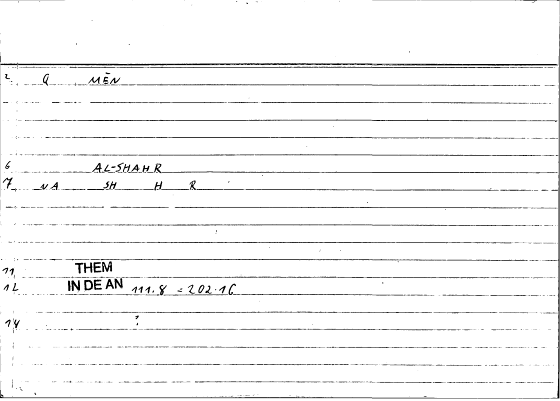 2 Q MĒN
6 AL-SHAHR
7 NA SH H R
11 THEM
12 IN DE AN 111.8 = 202.16
14 :